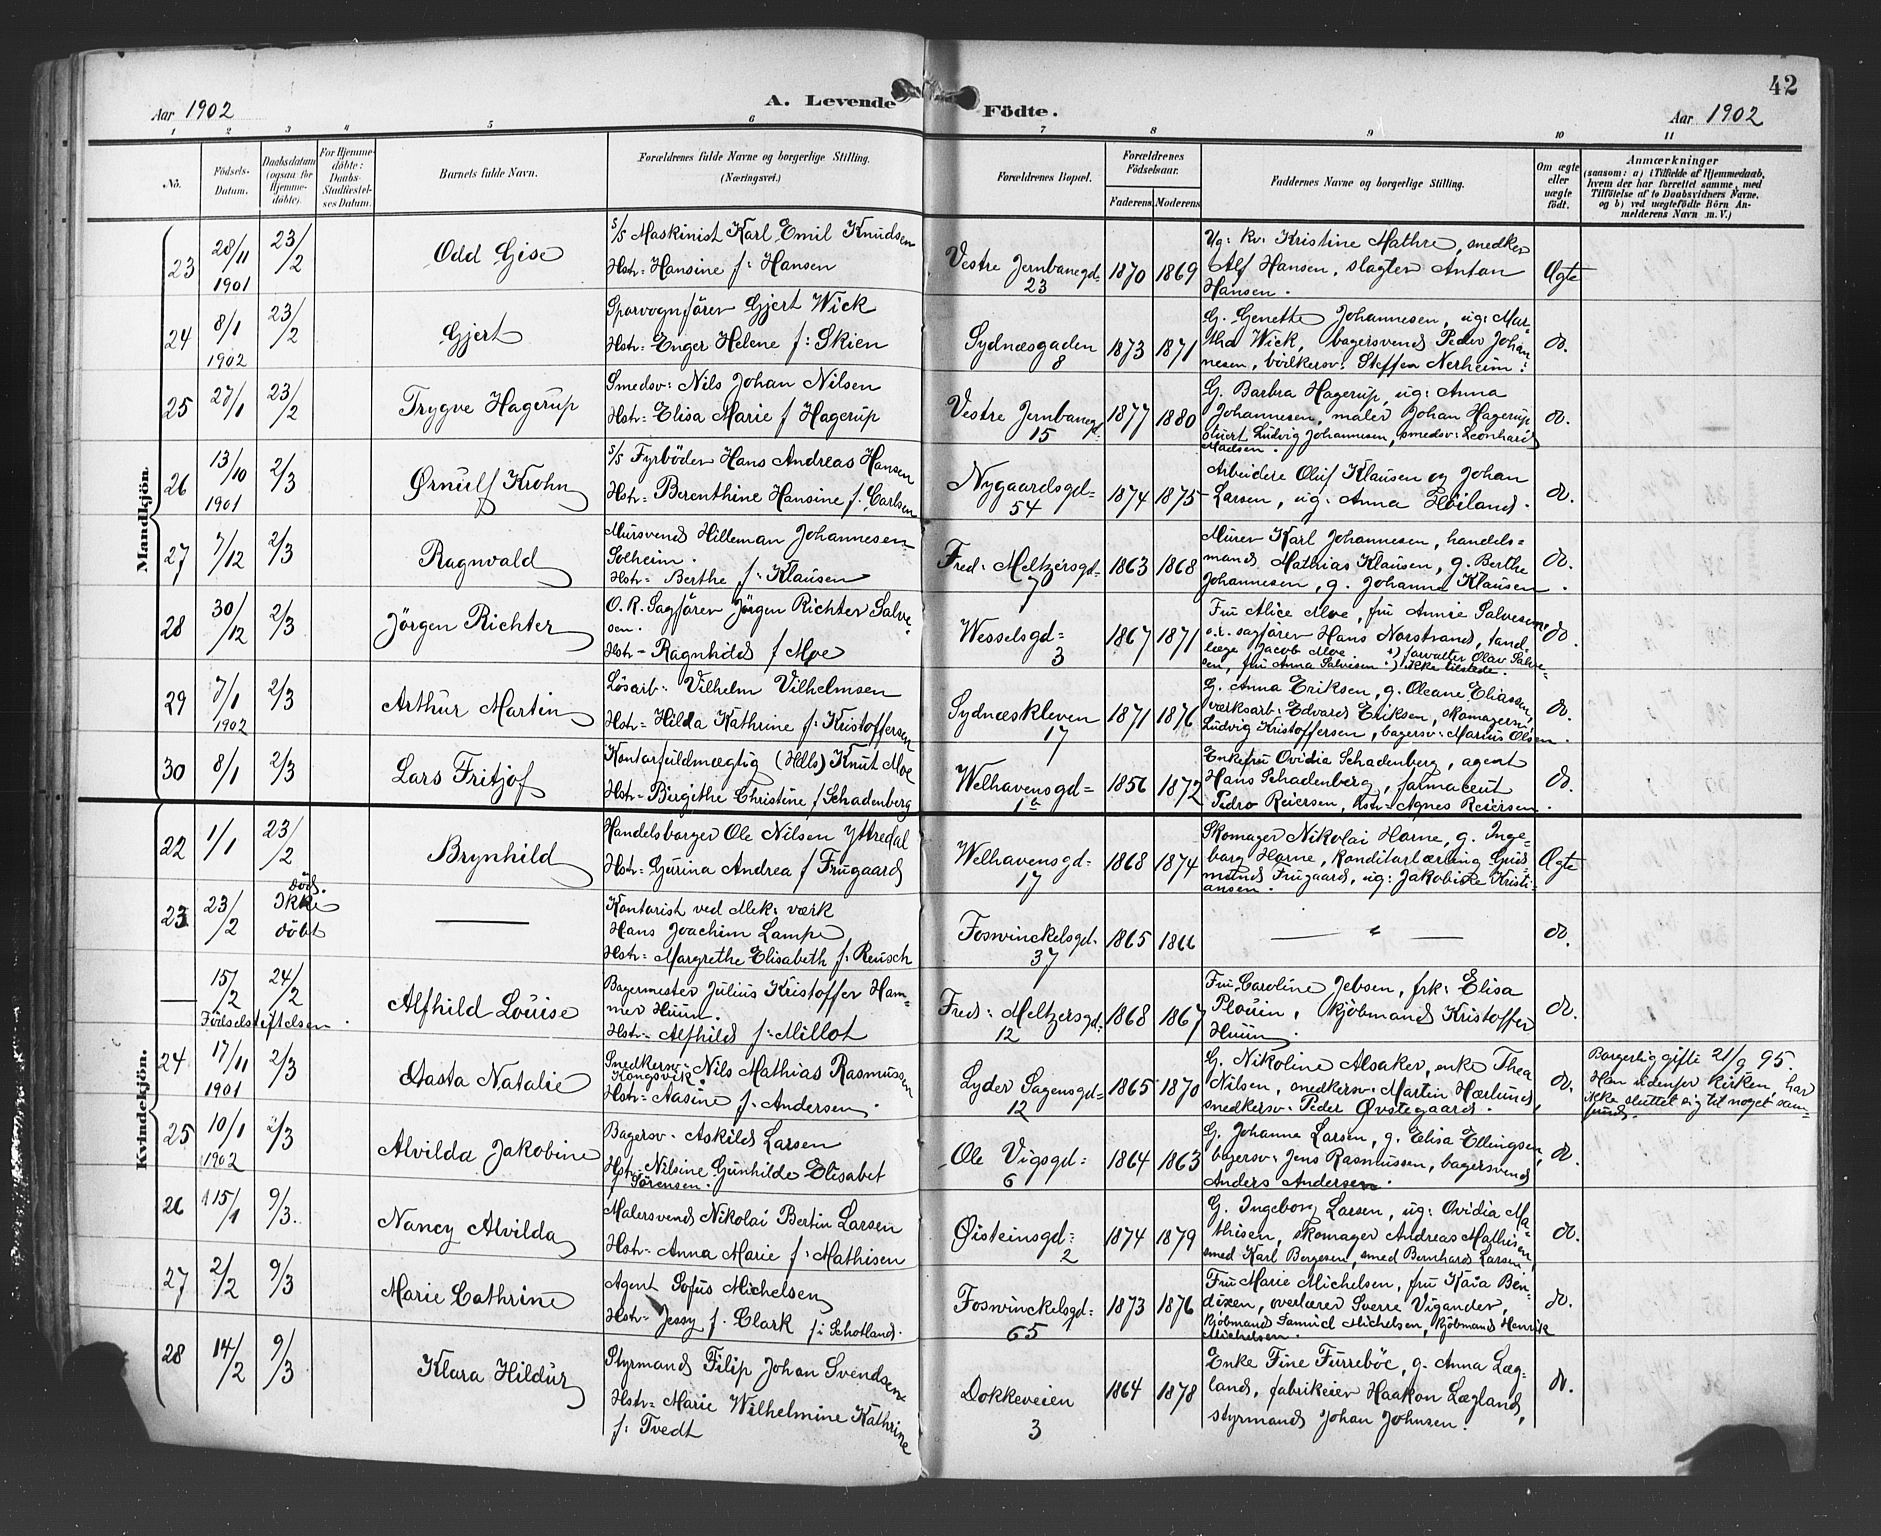 42
Aar 1902
A. Levende
Födte.
Aar 1902
1 2 3 4 5 6 7 8 9 10 11
No.
Födsels-
Datum.
Daabsdatum
(ogsaa for
Hjemme-
döbte).
For Hjemme-
döbte:
Daabs-
Stadfæstel-
ses Datum.
Barnets fulde Navn.
Forældrenes fulde Navne og borgerlige Stilling.
(Næringsvei.)
Forældrenes Bopæl.
Forældrenes
Födselsaar.
Faderens Moderens
Faddernes Navne og borgerlige Stilling.
Om ægte
eller
uægte
födt.
Anmærkninger
(saasom: a) i Tilfælde af Hjemmedaab,
hvem der har forrettet samme, med
Tilföielse af to Daabsvidners Navne,
og b) ved uægtefödte Börn An-
melderens Navn m. V.)
Mandkjön.
23
28/11
1901
23/2
Odd Gise
s/s Maskinist Karl Emil Knudsen
Hstr: Hansine f: Hansen
Vestre Jernbanegd:
23
1870 1869
Ug: kv: Kristine Mathre, snedker
Alf Hansen, slagter Anton
Hansen.
Ægte
24
8/1
1902
23/2
Gjert
Sporvognförer Gjert Wick
Hstr: Enger Helene f: Skien
Sydnæsgaden
8
1873 1871
G. Genette Johannesen, ug: Mar-
tha Wick, bagersvend Peder Johan-
nesen, bödkersv: Steffen Nerheim:
do.
25
27/1
23/2
Trygve Hagerup
Smedsv: Nils Johan Nilsen
Hstr: Elisa Marie f Hagerup
Vestre Jernbanegd:
15
1877 1880
G. Barbra Hagerup, ug: Anna
Johannesen, maler Johan Hagerup
stuert Ludvig Johannesen, smedsv: Leonhard
Madsen.
do.
26
13/10
1901
2/3
Ørnulf Krohn
s/s Fyrböder Hans Andreas Hansen
Hstr: Berenthine Hansine f. Carlsen
Nygaardsgd=
54
1874 1875
Arbeidere Oluf Klausen og Johan
Larsen, ug: Anna Höiland.
do.
27
7/12
2/3
Ragnvald
Mursvend Hilleman Johannesen
Solheim.
Hstr= Berthe f: Klausen
Fred: Meltzersgd=
7
1863 1868
Murer Karl Johannesen, handels=
mand Mathias Klausen, g. Berthe
Johannesen, g. Johanna Klausen.
do.
28
30/12
2/3
Jörgen Richter
O. R. Sagförer Jörgen Richter Salve-
sen.
Hstr= Ragnhild f Moe
Wesselsgd=
3
1867 1871
Fru Alice Moe, fru Annie Salvesen,
o.r. sagförer Hans Norstrand, tand-
læge Jacob Moe x) forvalter Olav Salve-
sen, fru Anna Salvesen x) ikke tilstede.
do.
29
7/1
1902
2/3
Arthur Martin
Lösarb: Vilhelm Vilhelmsen
Hstr= Hilda Kathrine f: Kristoffersen
Sydnæskleven
17
1871 1876
G. Anna Eriksen, g. Oleane Eliassen,
værksarb: Edvard Eriksen, skomagersv:
Ludvig Kristoffersen, bagersv: Marius Olsen.
do.
30
8/1
2/3
Lars Fritjof
Kontorfuldmægtig (Hdls) Knut Moe
Hstr= Birgithe Christine f Schadenberg
Welhavensgd=
1a
1856 1872
Enkefru Ovidia Schadenberg, agent
Hans Schadenberg, farmaceut
Pedro Reiersen, hstr= Agnes Reiersen.
do.
Kvindekjön.
22
1/1
23/2
Brynhild
Handelsborger Ole Nilsen Yttredal
Hstr= Gurina Andrea f Frugaard
Welhavensgd=
17
1868 1874
Skomager Nikolai Horne, g. Inge-
borg Horne, konditorlærling Gud-
mund Frugaard, ug: Jakobine Kristi-
ansen.
Ægte
23
23/2
död.
Ikke
döbt
—
Kontorist ved Mek: værk
Hans Joachim Lampe
Hstr= Margrethe Elisabeth f: Reusch
Fosswinckelsgd.
37
1865 1866
— „ —
do.
—
15/2
24/2
Födselstiftelsen.
Alfhild Louise
Bagermester Julius Kristoffer Ham-
mer Huun.
Hstr= Alfhild f: Millot
Fred: Meltzersgd:
12
1868 1867
Fru Caroline Jebsen, frk: Elisa
Plouin, kjöbmand Kristoffer
Huun
do.
24
17/11
1901
2/3
Aasta Natalie
Snedkersv: Nils Mathias Rasmussen
Kongsvik.
Hstr= Aasine f: Andersen.
Lyder Sagensgd=
12
1865 1870
G. Nikoline Alsaker, enke Thea
Nilsen, snedkersv: Martin Hærlund,
snedkersv: Peder Øvstegaard.
do.
Borgerlig gifte 21/9 95.
Han udenfor kirken, har
ikke sluttet sig til noget sam-
fund.
25
10/1
1902
2/3
Alvilda Jakobine
Bagersv. Askild Larsen
Hstr: Nilsine Gunhilde Elisabet
f Sörensen.
Ole Vigsgd=
6
1864 1863
G. Johanne Larsen, g. Elisa Ellingsen,
bagersv= Jens Rasmussen, bagersvend
Anders Andersen.
do.
26
15/1
9/3.
Nancy Alvilda
Malersvend Nikolai Bertin Larsen
Hstr= Anna Marie f: Mathisen
Øisteinsgd=
2
1874 1879
G. Ingeborg Larsen, ug: Ovidia Ma-
thisen, skomager Andreas Mathisen,
smed Karl Bergesen, smed Bernhard Larsen,
do.
27
2/2
9/3
Marie Cathrine
Agent Sofus Michelsen
Hstr= Jessy f. Clark f: i Schotland.
Fosswinckelsgd=
65
1873 1876
Fru Marie Michelsen, fru Kaia Ben-
dixen, overlærer Sverre Vigander,
kjöbmand Samuel Michelsen, kjöbmand Henrik
Michelsen.
do.
28
14/2
9/3
Klara Hildur
Styrmand Filip Johan Svendsen
Hstr= Marie Wilhelmine Kathrine
f: Tvedt
Dokkeveien
3
1864 1878
Enke Fine Furreböe, g. Anna Læg-
land, fabrikeier Haakon Lægland,
styrmand Johan Johnsen.
do.